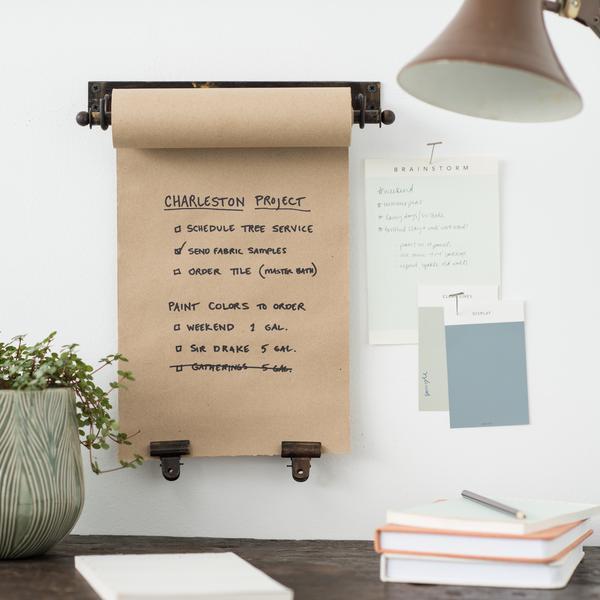 CHARLESTON PROJECT
SCHEDULE TREE SERVICE
SEND FABRIC SAMPLES
ORDER TILE (MASTER BATH)
PAINT COLORS TO ORDER
WEEKEND 1 GAL.
SIR DRAKE 5 GAL.
GATHERINGS 5 GAL.
BRAINSTORM
#weekend
DISPLAY
sample